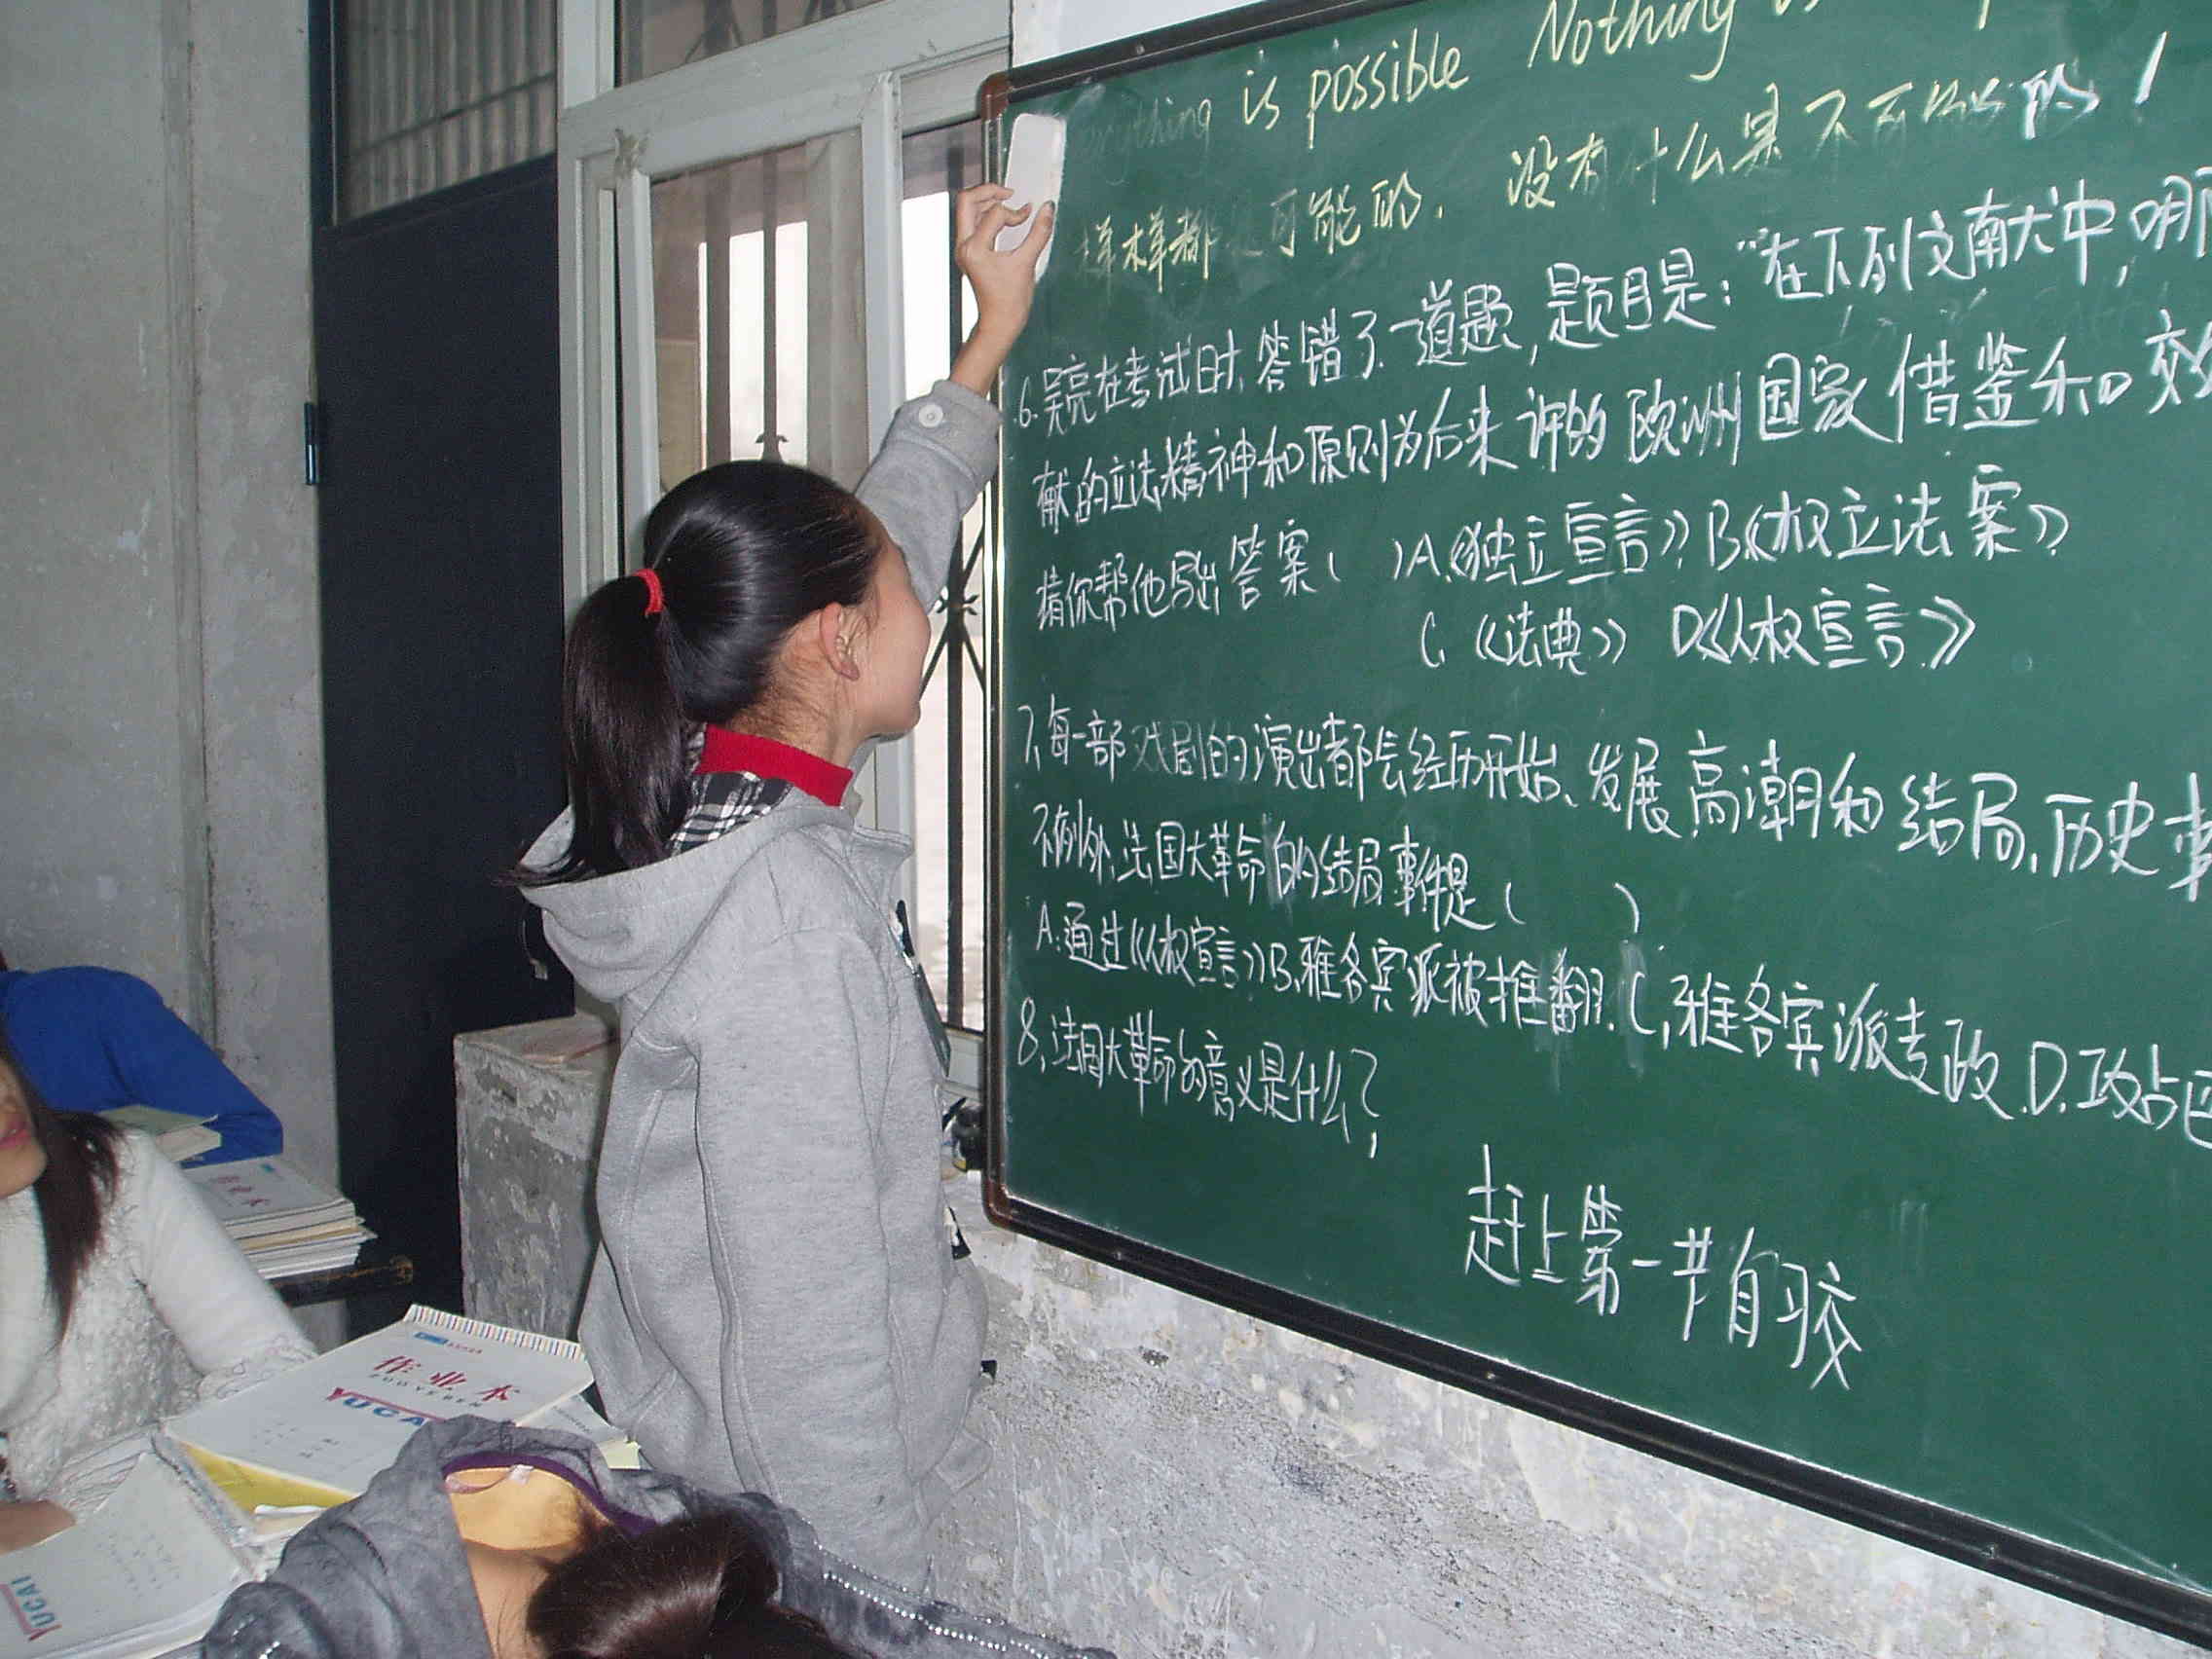 is possible Nothing is
样样都是可能的. 没有什么是不可能的!
6. 吴亮在考试时,答错了一道题,题目是:"在下列文献中,哪
献的立法精神和原则为后来许的欧洲国家借鉴和效
请你帮他写出答案( )A.《独立宣言》B《权立法案》
C.《法典》 D《人权宣言》
7.每一部戏剧的演出都会经历开始、发展高潮和结局,历史事
不例外,法国大革命的结局事件是( )
A.通过《人权宣言》B.雅各宾派被推翻.C,雅各宾派专政.D.攻占巴
8.法国大革命的意义是什么?
赶上第一节自习交
作业本
ZUOYEBEN
YUCAI
YUCAI